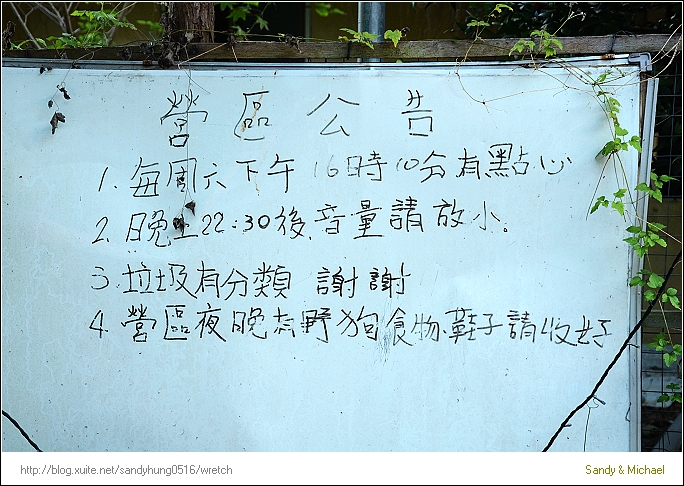 營區公告
1. 每周六下午 16時10分有點心
2. 晚上22:30後,音量請放小。
3. 垃圾有分類 謝謝
4. 營區夜晚有野狗食物、鞋子請收好
http://blog.xuite.net/sandyhung0516/wretch
Sandy & Michael